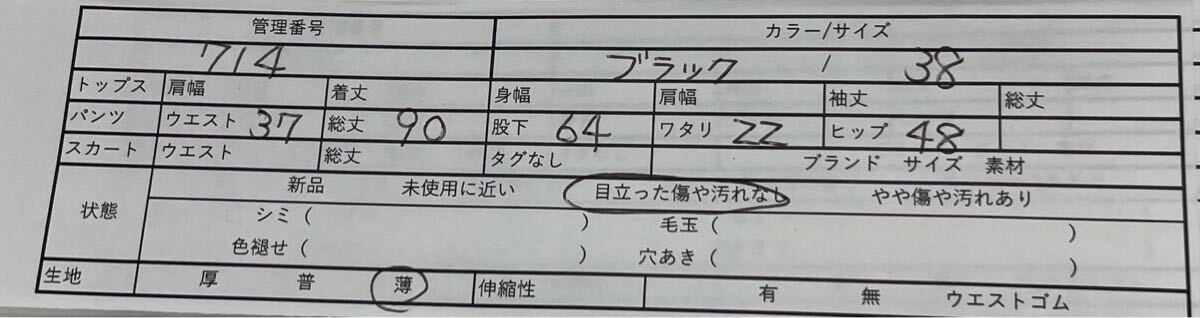 管理番号 カラー/サイズ
714 ブラック / 38
トップス 肩幅 着丈 身幅 肩幅 袖丈 総丈
パンツ ウエスト 37 総丈 90 股下 64 ワタリ 22 ヒップ 48
スカート ウエスト 総丈 タグなし ブランド サイズ 素材
状態 新品 未使用に近い 目立った傷や汚れなし やや傷や汚れあり
シミ ( ) 毛玉 ( )
色褪せ ( ) 穴あき ( )
生地 厚 普 薄 伸縮性 有 無 ウエストゴム